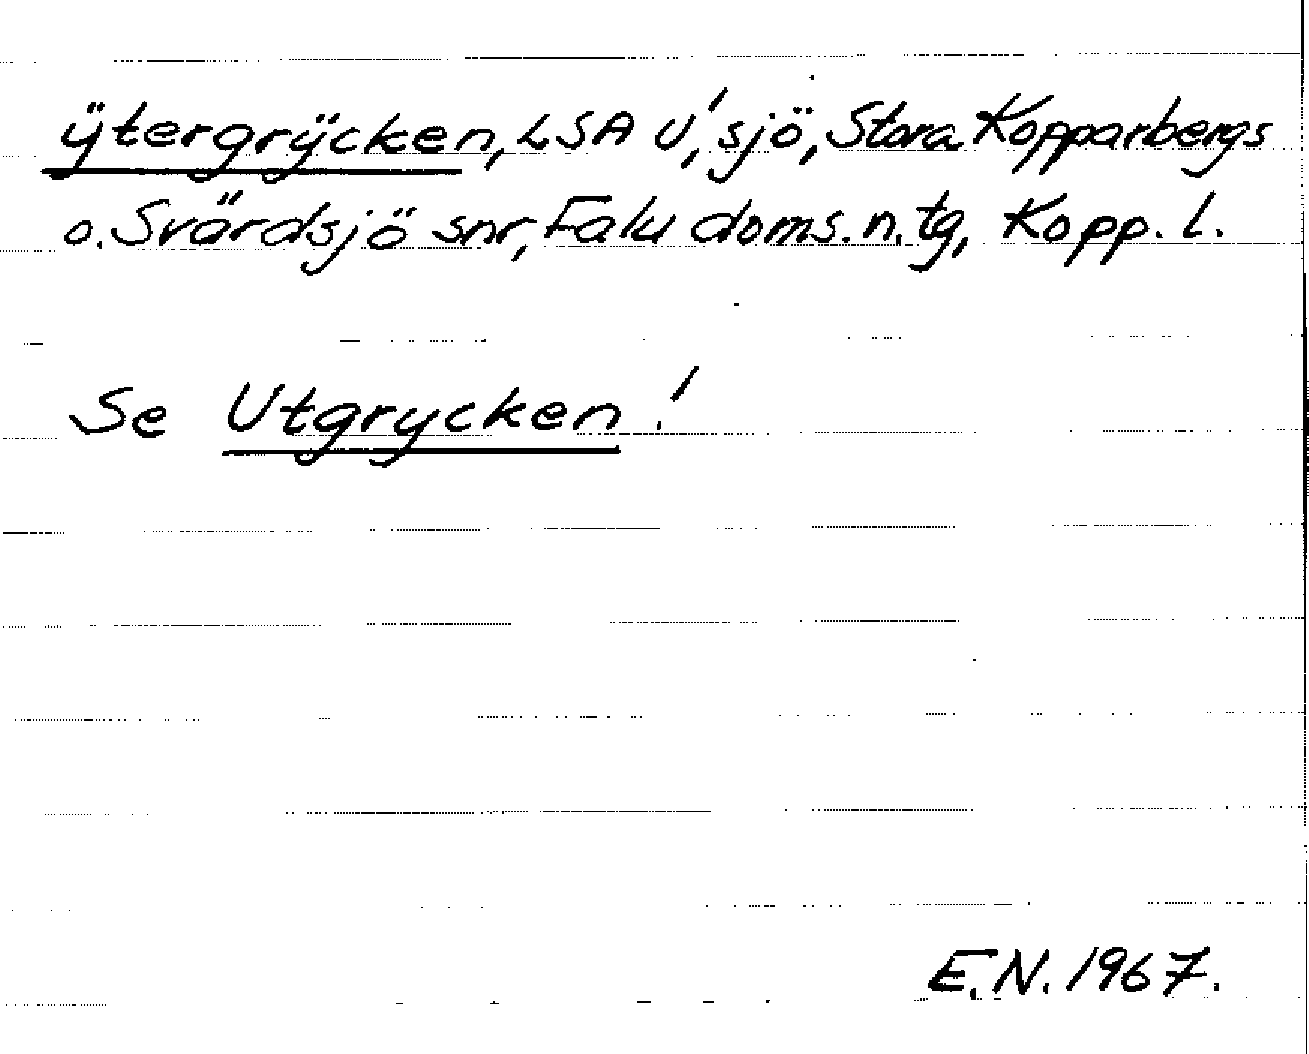 ÿtergrÿcken, LSA U!, sjö, Stora Kopparbergs
o. Svärdsjö snr, Falu doms. n. tg, Kopp. l.
Se Utgrycken!
E.N. 1967.